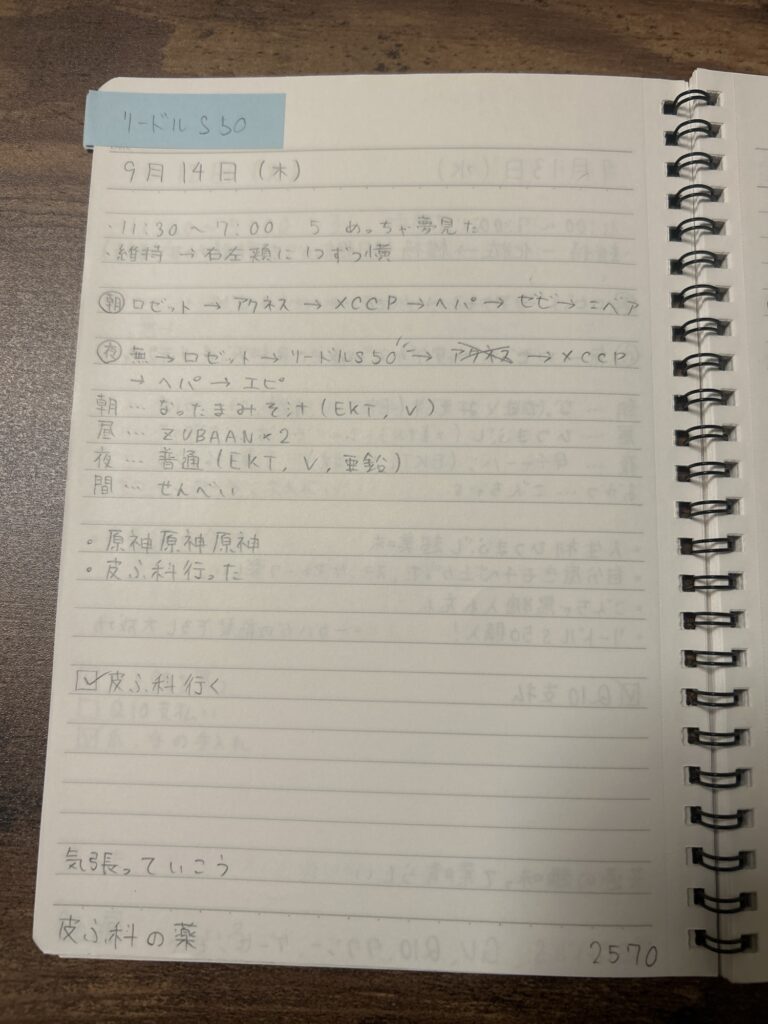 リードルS50
9月14日(木)
・11:30〜7:00 5 めっちゃ夢見た
・維持→右左頬に1つずつ横
朝 ロゼット→アクネス→×CCP→ヘパ→ゼビ→ニベア
夜 無→ロゼット→リードルS50→アクネス→×CCP
→ヘパ→エピ
朝…なったまみそ汁(EKT, V)
昼…ZUBAAN×2
夜…普通(EKT, V, 亜鉛)
間…せんべい
・原神原神原神
・皮ふ科行った
☑皮ふ科行く
気張っていこう
皮ふ科の薬 2570